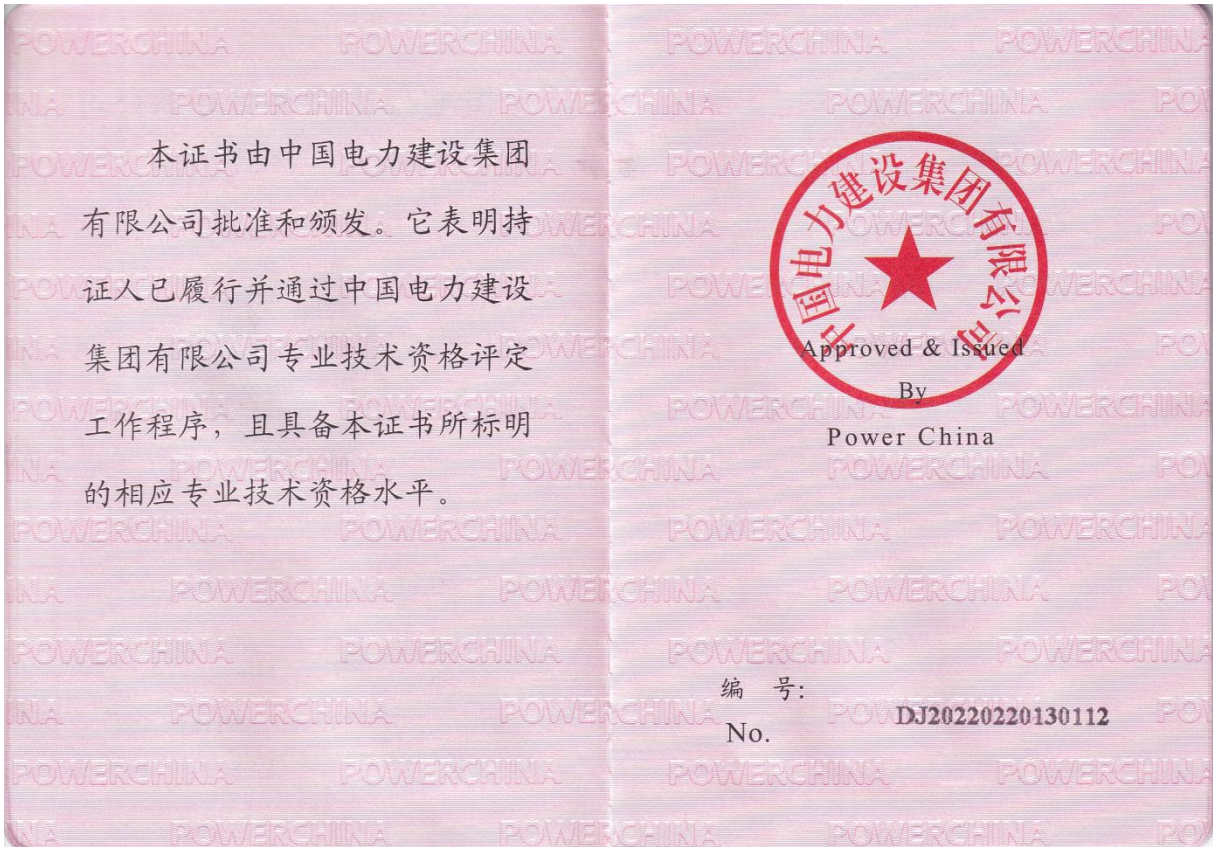 本证书由中国电力建设集团
有限公司批准和颁发。它表明持
证人已履行并通过中国电力建设
集团有限公司专业技术资格评定
工作程序，且具备本证书所标明
的相应专业技术资格水平。
中国电力建设集团有限公司
Approved & Issued
By
Power China
编 号:
No.
DJ20220220130112
POWERCHINA